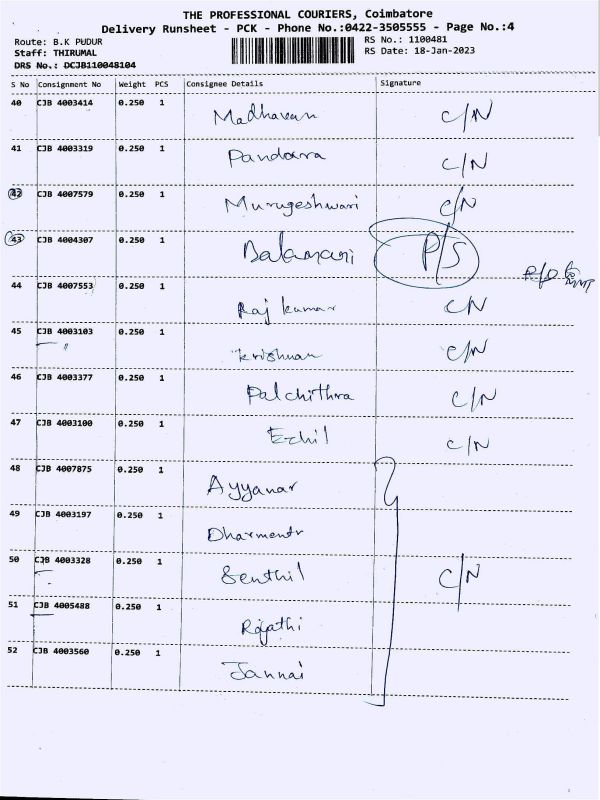 THE PROFESSIONAL COURIERS, Coimbatore
Delivery Runsheet - PCK - Phone No.:0422-3505555 - Page No.:4
Route: B.K PUDUR RS No.: 1100481
Staff: THIRUMAL RS Date: 18-Jan-2023
DRS No.: DCJB110048104
S No Consignment No Weight PCS Consignee Details Signature
40 CJB 4003414 0.250 1 Madhavan C/N
41 CJB 4003319 0.250 1 Pandara C/N
42 CJB 4007579 0.250 1 Murugeshwari C/N
43 CJB 4004307 0.250 1 Balamani P/S
44 CJB 4007553 0.250 1 Raj kumar CN
45 CJB 4003103 0.250 1 Krishnan C/N
46 CJB 4003377 0.250 1 Palchithra C/N
47 CJB 4003100 0.250 1 Ezhil C/N
48 CJB 4007875 0.250 1 Ayyanar
49 CJB 4003197 0.250 1 Dharmentr
50 CJB 4003328 0.250 1 Senthil C/N
51 CJB 4005488 0.250 1 Rajathi
52 CJB 4003560 0.250 1 Jannai